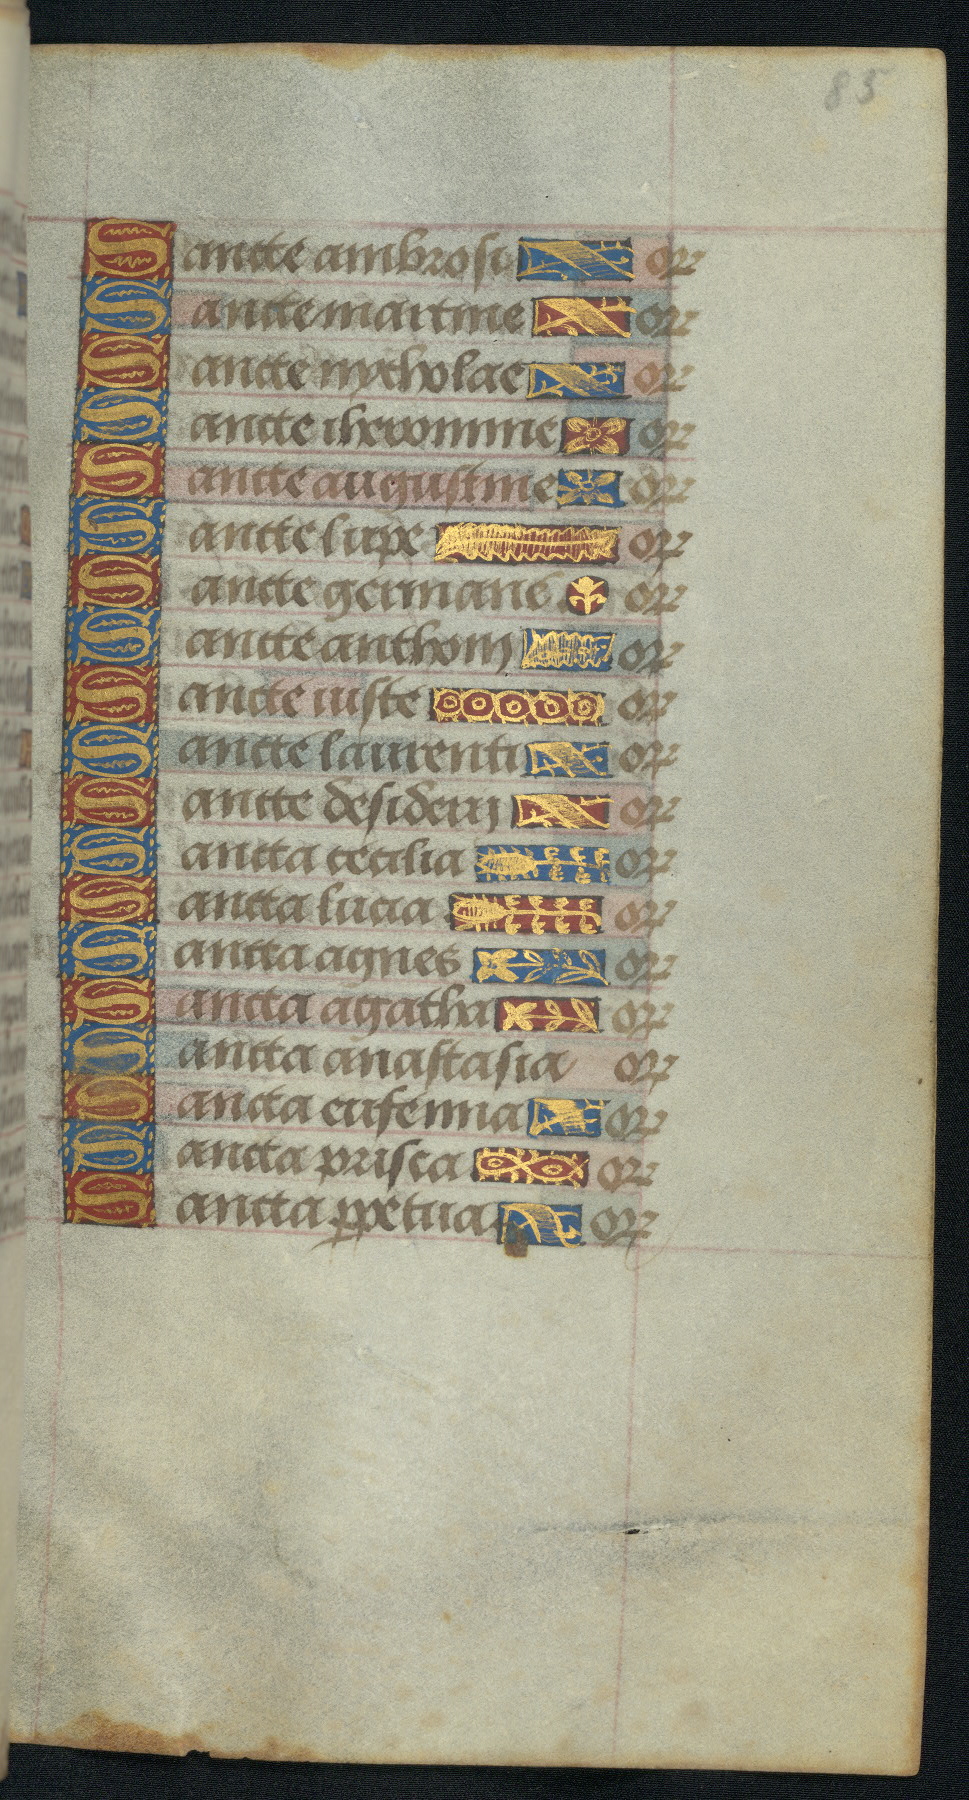 85
Sancte ambrosi or
Sancte martine or
Sancte nycholae or
Sancte iheronime or
Sancte augustine or
Sancte lupe or
Sancte germane or
Sancte anthoni or
Sancte iuste or
Sancte laurenti or
Sancte desiderij or
Sancta cecilia or
Sancta lucia or
Sancta agnes or
Sancta agatha or
Sancta anastasia or
Sancta eufemia or
Sancta prisca or
Sancta ppetua or